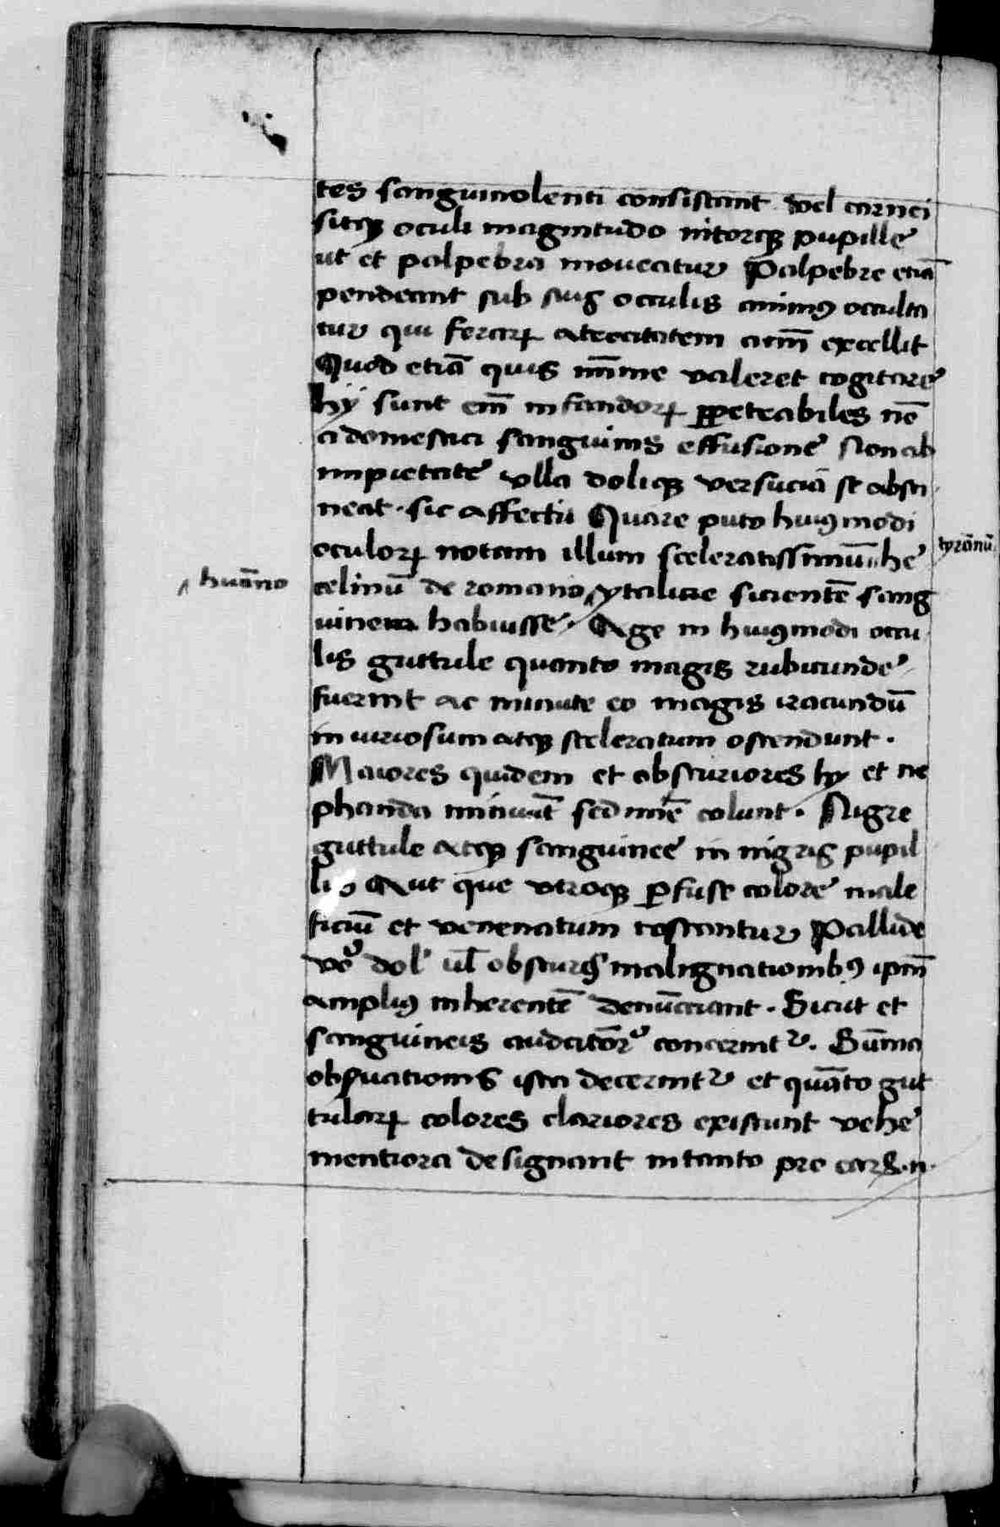 tes sanguinolenti consistant vel carnei
sitqꝫ oculi magnitudo nitorqꝫ pupille
ut et palpebra moueatur Palpebre etiā
pendeant sub suis occulis animꝰ occulta
tur qui ferarꝝ atrocitatem cum̄ excellit
Quod etiā quis mīme valeret cogitare
hÿ sunt em̄ infandorꝝ ꝑpetrabiles nō
a domestici sanguinis effusione Non ab
impietate ulla doliqꝫ versucia se absti
neat · sic affectu Quare puto huiꝰmodi
oculorꝝ notam illum sceleratissimū he
tyrānū
celinū de romano ytalice sicientē sang
huāno
uinem habuisse · Age in huiꝰmodi occu
lis guttule quanto magis rubicunde
fuerint ac minute eo magis iracundū
iniuriosum atqꝫ sceleratum ostendunt ·
Maiores quidem et obscuriores hy et ne
phanda minuūt sed colunt · Nigre
guttule atqꝫ sanguinee in nigris pupil
lis Aut que utroqꝫ ꝑfuse colore male
ficiū et venenatum testantur Pallide
vo dol' ul̄ obscuris malignationibꝰ ipm̄
ampliꝰ inherentē denūciant · Sicut et
sanguineis audatiorꝭ concernit ur · Sūma
obꝑuationis ista decernit ur et quāto gut
tularꝝ colores clariores existunt vehe
mentiora designant intanto pro